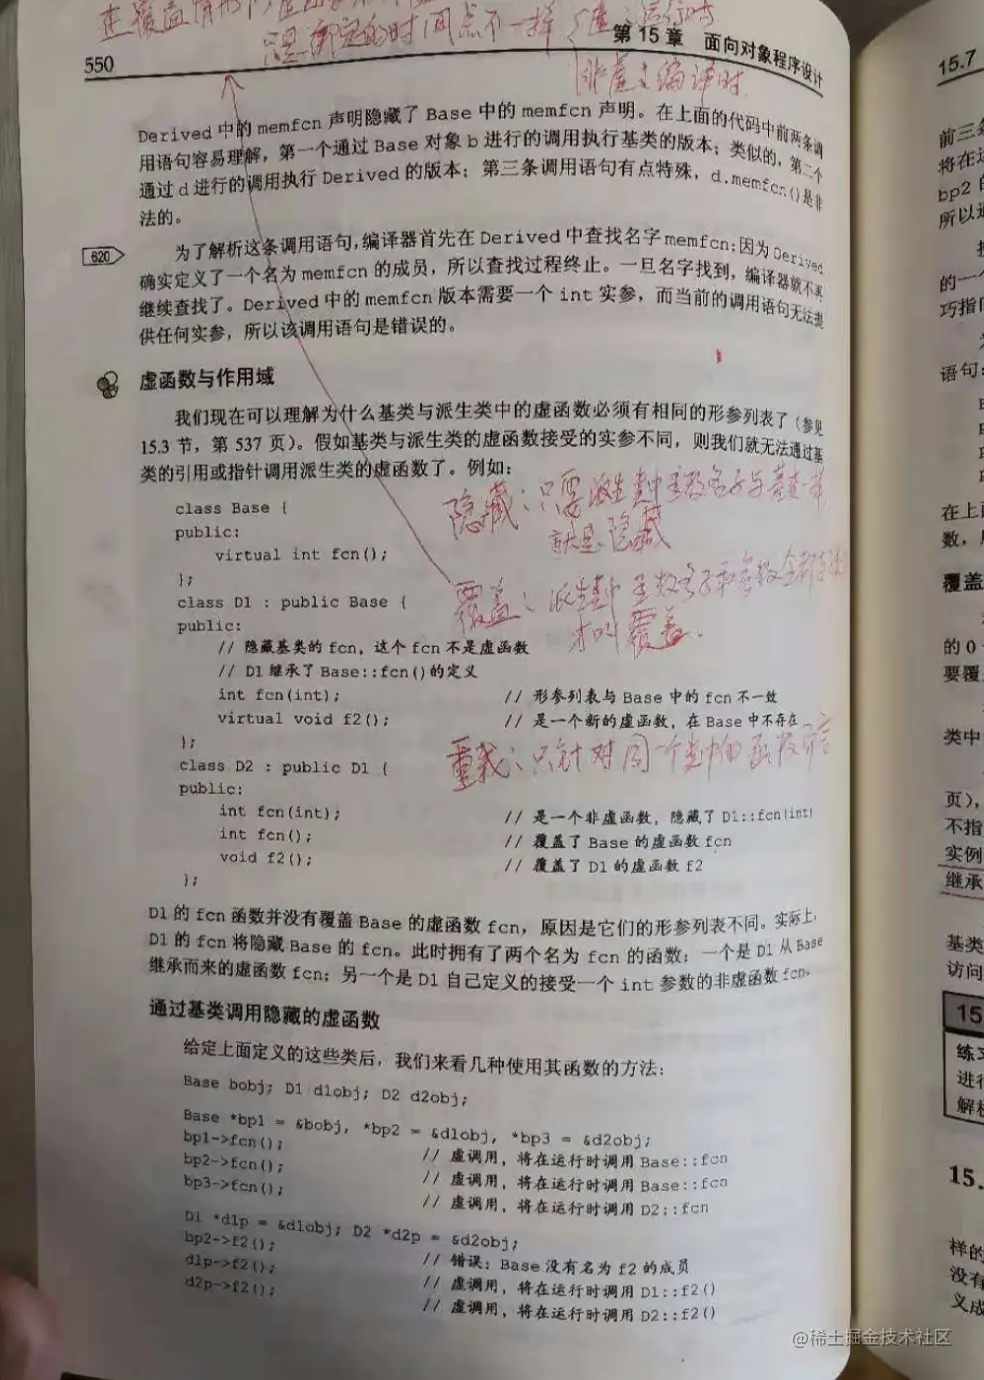 在覆盖情形
混绑定的时间点不一样 {虚:运行时
550
第 15 章 面向对象程序设计
非虚:编译时
Derived 中的 memfcn 声明隐藏了 Base 中的 memfcn 声明。在上面的代码中前两条调
用语句容易理解，第一个通过 Base 对象 b 进行的调用执行基类的版本；类似的，第二个
通过 d 进行的调用执行 Derived 的版本；第三条调用语句有点特殊，d.memfcn()是非
法的。
620
为了解析这条调用语句,编译器首先在 Derived 中查找名字 memfcn;因为 Derived
确实定义了一个名为 memfcn 的成员，所以查找过程终止。一旦名字找到，编译器就不再
继续查找了。Derived 中的 memfcn 版本需要一个 int 实参，而当前的调用语句无法提
供任何实参，所以该调用语句是错误的。
虚函数与作用域
我们现在可以理解为什么基类与派生类中的虚函数必须有相同的形参列表了（参见
15.3 节，第 537 页）。假如基类与派生类的虚函数接受的实参不同，则我们就无法通过基
类的引用或指针调用派生类的虚函数了。例如：
隐藏：只要派生类中函数名字与基类一样
就是隐藏
class Base {
public:
virtual int fcn();
};
覆盖：派生类中函数名字和参数全部
才叫覆盖.
class D1 : public Base {
public:
// 隐藏基类的 fcn，这个 fcn 不是虚函数
// D1 继承了 Base::fcn()的定义
int fcn(int); // 形参列表与 Base 中的 fcn 不一致
virtual void f2(); // 是一个新的虚函数，在 Base 中不存在
};
重载：只针对同一个类中的函数而言
class D2 : public D1 {
public:
int fcn(int); // 是一个非虚函数，隐藏了 D1::fcn(int)
int fcn(); // 覆盖了 Base 的虚函数 fcn
void f2(); // 覆盖了 D1 的虚函数 f2
};
D1 的 fcn 函数并没有覆盖 Base 的虚函数 fcn，原因是它们的形参列表不同。实际上，
D1 的 fcn 将隐藏 Base 的 fcn。此时拥有了两个名为 fcn 的函数：一个是 D1 从 Base
继承而来的虚函数 fcn；另一个是 D1 自己定义的接受一个 int 参数的非虚函数 fcn。
通过基类调用隐藏的虚函数
给定上面定义的这些类后，我们来看几种使用其函数的方法：
Base bobj; D1 d1obj; D2 d2obj;
Base *bp1 = &bobj, *bp2 = &d1obj, *bp3 = &d2obj;
bp1->fcn(); // 虚调用，将在运行时调用 Base::fcn
bp2->fcn(); // 虚调用，将在运行时调用 Base::fcn
bp3->fcn(); // 虚调用，将在运行时调用 D2::fcn
D1 *d1p = &d1obj; D2 *d2p = &d2obj;
bp2->f2(); // 错误：Base 没有名为 f2 的成员
d1p->f2(); // 虚调用，将在运行时调用 D1::f2()
d2p->f2(); // 虚调用，将在运行时调用 D2::f2()
15.7
前三条
将在运
bp2 的
所以通
的一个
巧指
语句：
在上面
数，
覆盖
的 0
要覆
类中
页），
不指
实例
继承
基类
访问
15
练习
进行
解析
15.
样的
没有
义成
@稀土掘金技术社区